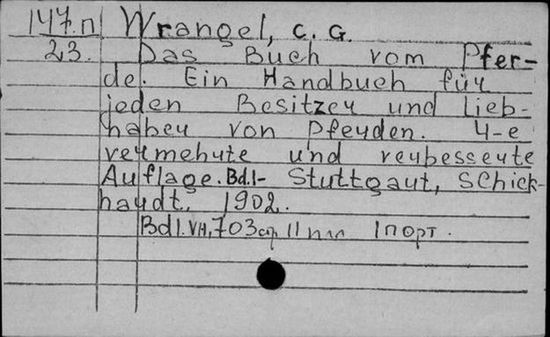 147.п Wrangel, C. G.
23. Das Buch vom Pfer-
de. Ein Handbuch für
jeden Besitzer und Lieb-
haber von Pferden. 4-e
vermehrte und verbesserte
Auflage. Bd.I- Stuttgart, Schick-
hardt, 1902.
Bd I. VII, 703 стр, 11 пл 1 порт.